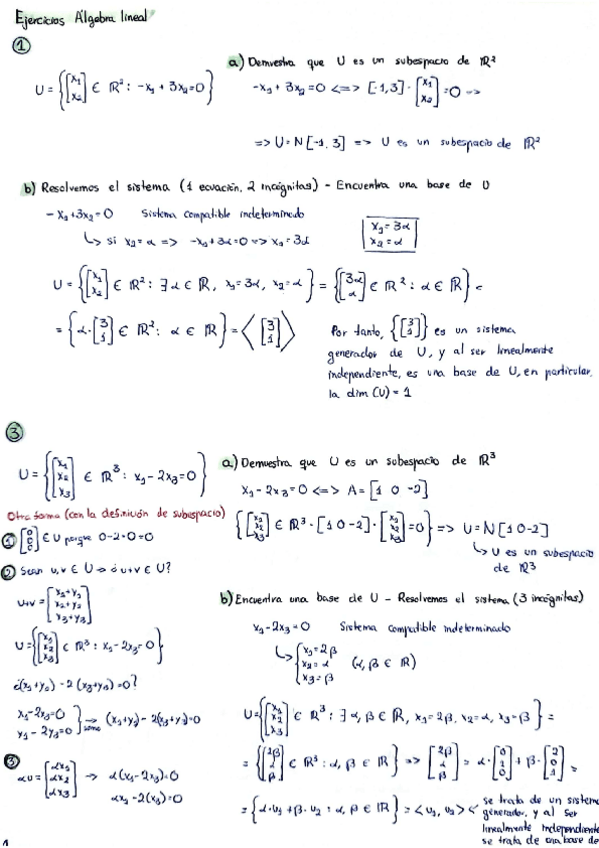 Ejercicios Álgebra lineal
①
a) Demuestra que U es un subespacio de ℝ²
U = {[x₁ x₂] ∈ ℝ² : -x₁ + 3x₂ = 0}
-x₁ + 3x₂ = 0 <=> [-1, 3] · [x₁ x₂] = 0 =>
=> U = N[-1, 3] => U es un subespacio de ℝ²
b) Resolvemos el sistema (1 ecuación, 2 incógnitas) - Encuentra una base de U
-x₁ + 3x₂ = 0 Sistema compatible indeterminado
↳ si x₂ = α => -x₁ + 3α = 0 => x₁ = 3α
x₁ = 3α
x₂ = α
U = {[x₁ x₂] ∈ ℝ² : ∃ α ∈ ℝ, x₁ = 3α, x₂ = α} = {[3α α] ∈ ℝ² : α ∈ ℝ} =
= {α · [3 1] ∈ ℝ² : α ∈ ℝ} = ⟨[3 1]⟩
Por tanto, {[3 1]} es un sistema
generador de U, y al ser linealmente
independiente, es una base de U, en particular,
la dim (U) = 1
③
U = {[x₁ x₂ x₃] ∈ ℝ³ : x₁ - 2x₃ = 0}
a) Demuestra que U es un subespacio de ℝ³
x₁ - 2x₃ = 0 <=> A = [1 0 -2]
{[x₁ x₂ x₃] ∈ ℝ³ · [1 0 -2] · [x₁ x₂ x₃] = 0} => U = N[1 0 -2]
↳ U es un subespacio
de ℝ³
Otra forma (con la definición de subespacio)
① [0 0 0] ∈ U porque 0 - 2·0 = 0
② Sean u, v ∈ U => ¿u+v ∈ U?
u+v = [x₁+y₁ x₂+y₂ x₃+y₃]
U = {[x₁ x₂ x₃] ∈ ℝ³ : x₁ - 2x₃ = 0}
¿(x₁+y₁) - 2(x₃+y₃) = 0?
x₁ - 2x₃ = 0
y₁ - 2y₃ = 0 } → suma (x₁+y₁) - 2(x₃+y₃) = 0
③ αu = [αx₁ αx₂ αx₃] → α(x₁ - 2x₃) = 0
αx₁ - 2α(x₃) = 0
b) Encuentra una base de U - Resolvemos el sistema (3 incógnitas)
x₁ - 2x₃ = 0 Sistema compatible indeterminado
↳ { x₁ = 2β
x₂ = α (α, β ∈ ℝ)
x₃ = β
U = {[x₁ x₂ x₃] ∈ ℝ³ : ∃ α, β ∈ ℝ, x₁ = 2β, x₂ = α, x₃ = β} =
= {[2β α β] ∈ ℝ³ : α, β ∈ ℝ} => [2β α β] = α · [0 1 0] + β · [2 0 1] =
= {α · u₁ + β · u₂ : α, β ∈ ℝ} = <u₁, u₂>
se trata de un sistema
generador, y al ser
linealmente independiente
se trata de una base de
1